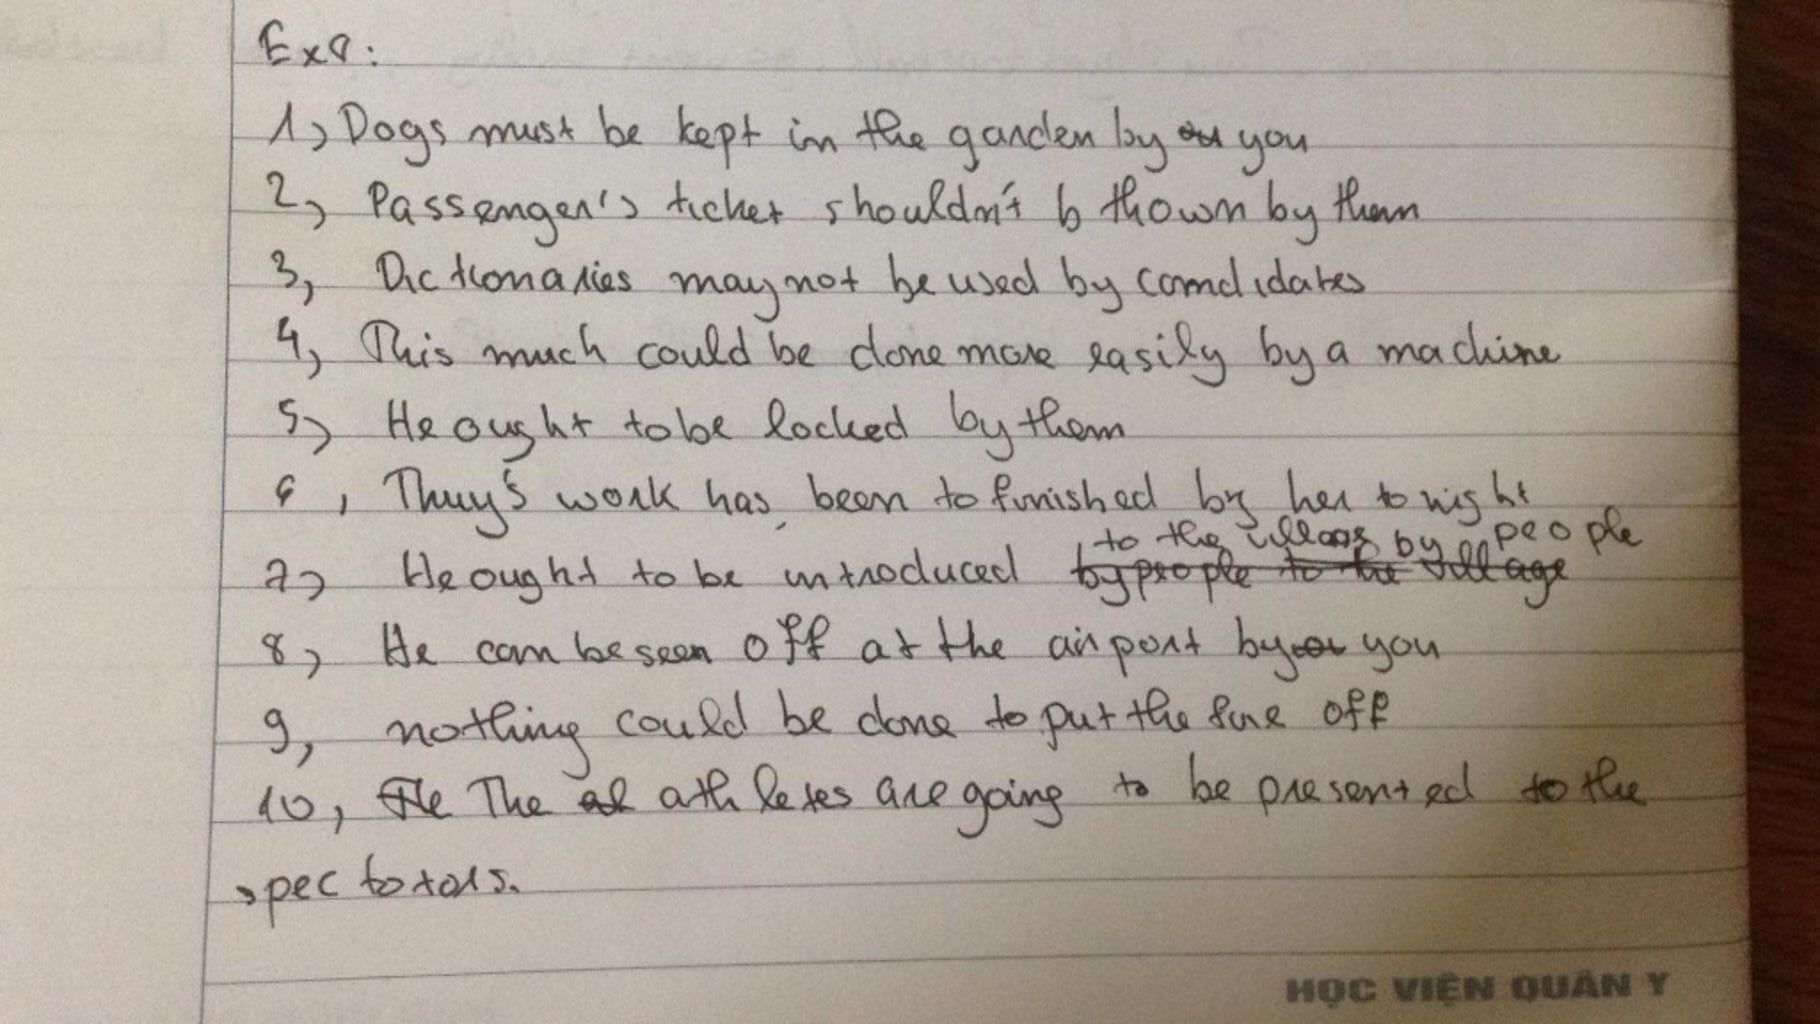 Ex8:
1, Dogs must be kept in the garden by you
2, Passenger's ticket shouldn't b thown by them
3, Dictionaries may not be used by candidates
4, This much could be done more easily by a machine
5, He ought to be locked by them
6, Thuy's work has been to finished by her to night
to the village by people
7, He ought to be introduced by people to the village
8, He can be seen off at the airport by you
9, nothing could be done to put the fire off
10, The athletes are going to be presented to the
spectotors.
HỌC VIỆN QUÂN Y